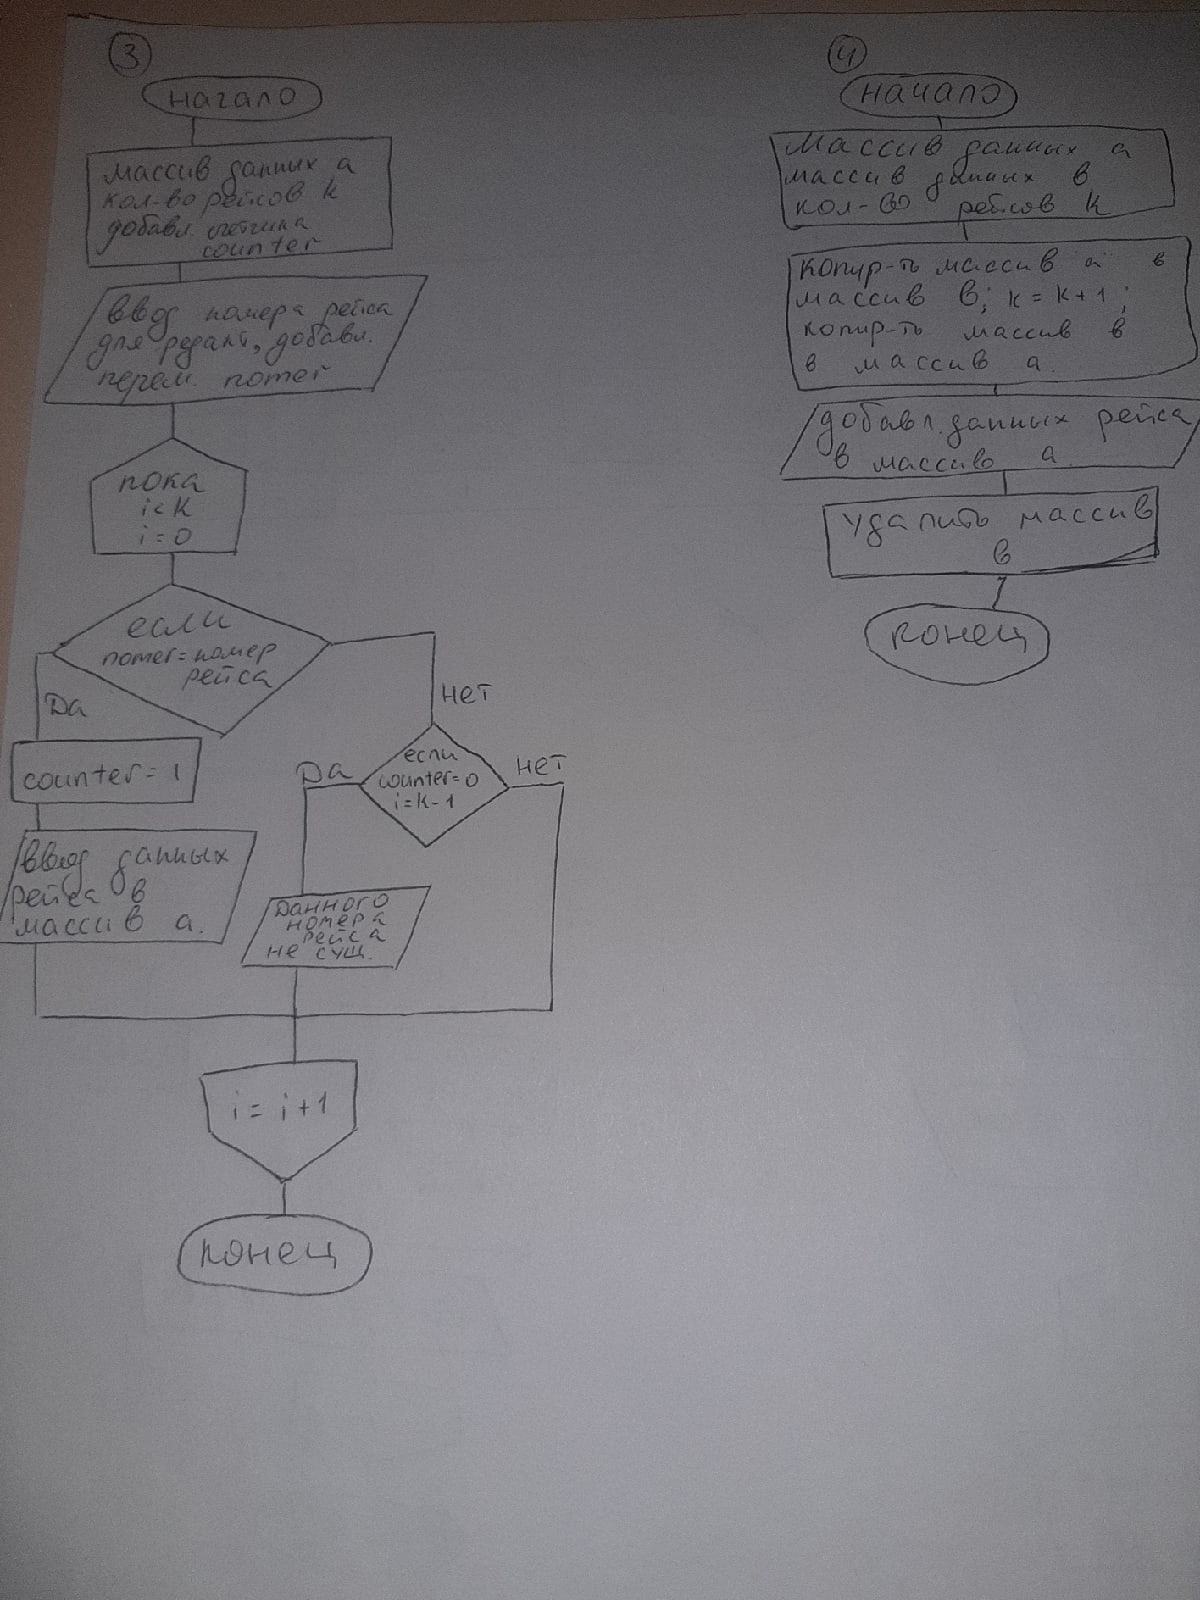 3
начало
массив данных a
кол-во рейсов k
добавл. счетчика
counter
ввод номера рейса
для редакт., добавл.
перем. nomer
пока
i<k
i=0
если
nomer=номер
рейса
Да
нет
counter=1
если
counter=0
i=k-1
Да
нет
ввод данных
рейса в
массив a.
Данного
номера
рейса
не сущ.
i=i+1
конец
4
начало
массив данных a
массив данных в
кол-во рейсов k
копир-ть массив a в
массив в; k=k+1;
копир-ть массив в
в массив a.
добавл. данных рейса
в массив a.
удалить массив
в
конец